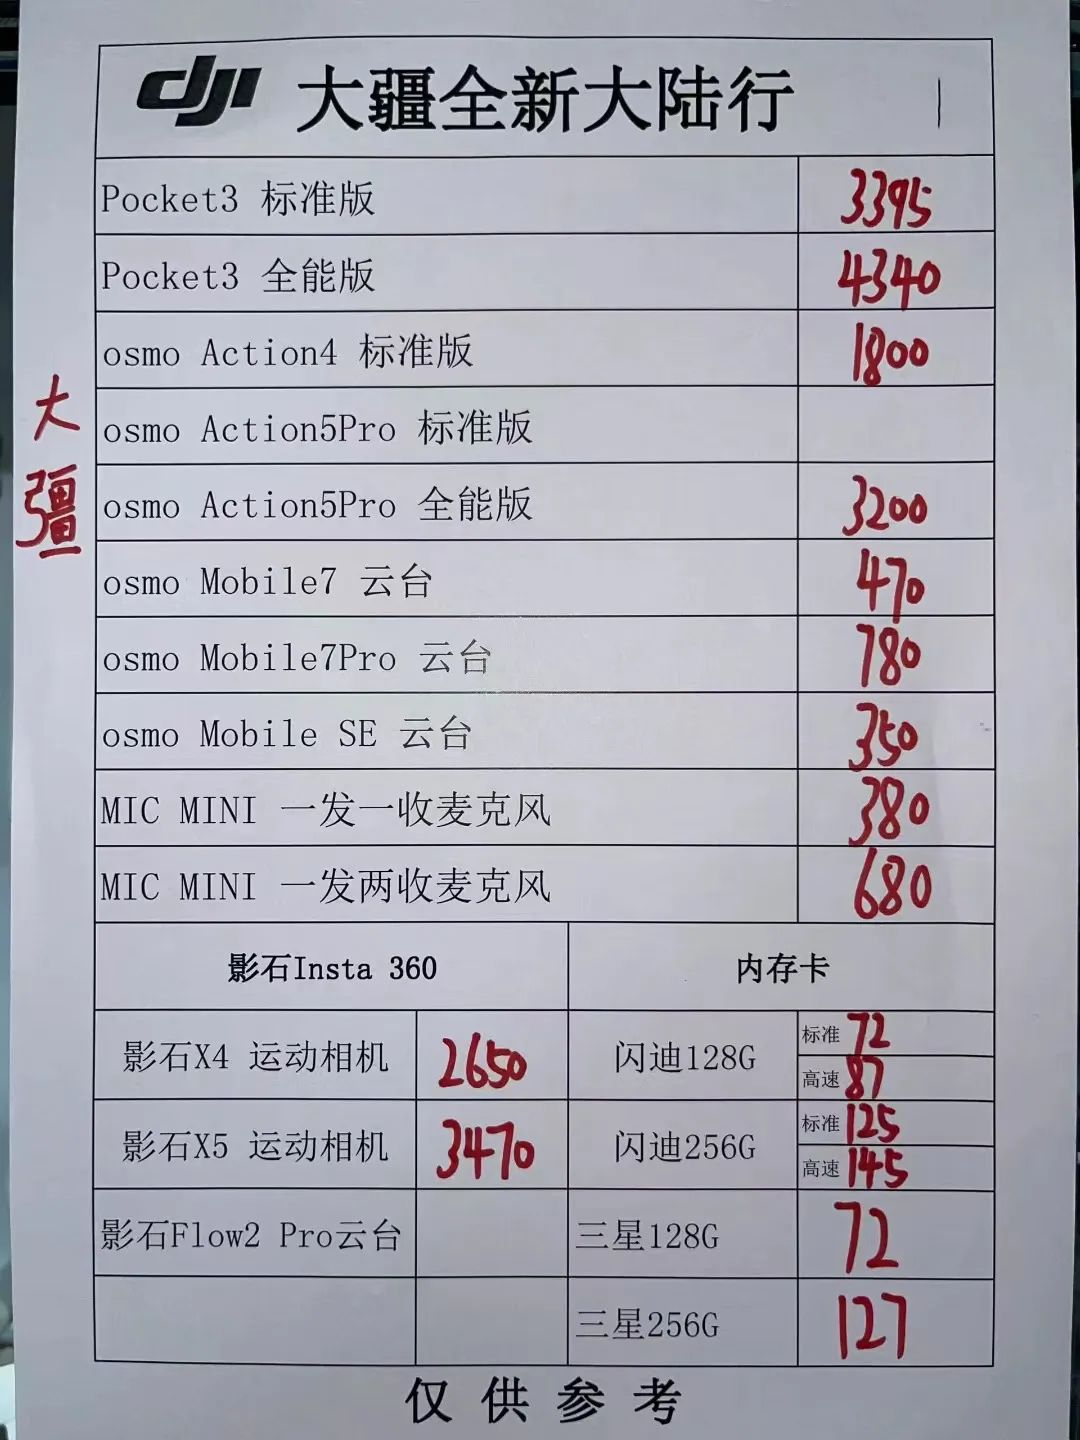 dji 大疆全新大陆行
Pocket3 标准版 3395
Pocket3 全能版 4340
osmo Action4 标准版 1800
大疆
osmo Action5Pro 标准版
osmo Action5Pro 全能版 3200
osmo Mobile7 云台 470
osmo Mobile7Pro 云台 780
osmo Mobile SE 云台 350
MIC MINI 一发一收麦克风 380
MIC MINI 一发两收麦克风 680
影石Insta 360 内存卡
影石X4 运动相机 2650 闪迪128G 标准 72
高速 87
影石X5 运动相机 3470 闪迪256G 标准 125
高速 145
影石Flow2 Pro云台 三星128G 72
三星256G 127
仅供参考